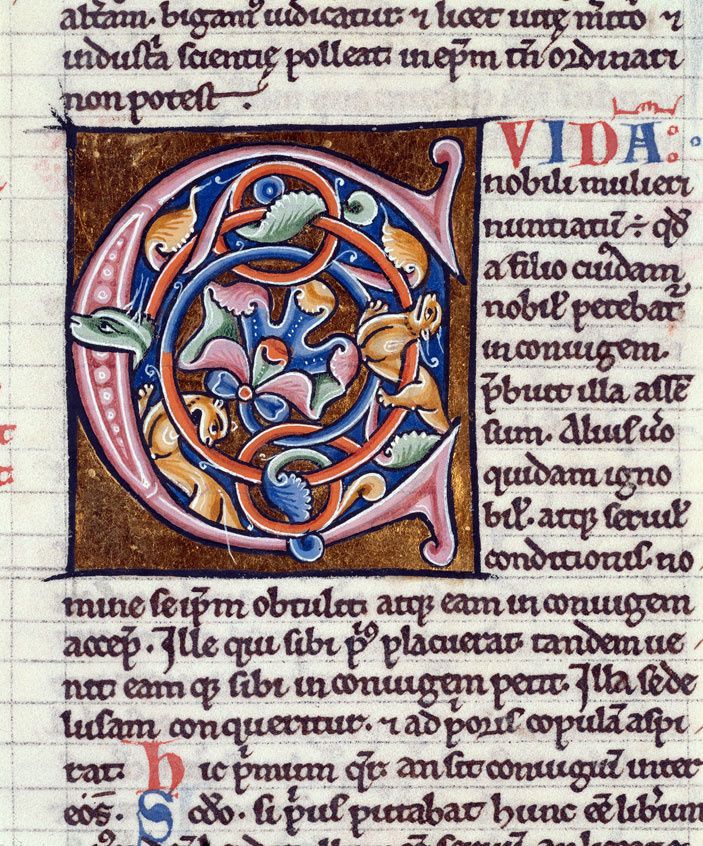 abr̄am. bigamꝰ iudicatur. ⁊ licet uite m̄ito ⁊
indust̄a scientię polleat. in ep̄m tn̄ ordinari
non potest.
CVIDĀ
nobili mulieri
nuntiatū ÷ qđ
a filio cuīdam
nobil̛ petebat᷑
in coniugem.
p̄buit illa assē
sum. Alius ũo
quidam igno
bil̛. atq; seruil̛
conditionis. no
mine se ip̄m obtulit. atq; eam in coniugem
accep̄. Ille qui sibi pͥꝰ placuerat. tandem ue
nit. eam q; sibi in coniugem petit. Illa se de
lusam conqueritur. ⁊ ad pͥoris copulā aspi
rat. hic pͥmum q̄r. an sit coniugiū inter
eos. Scđo. si pͥus putabat hunc eē̄ libūm